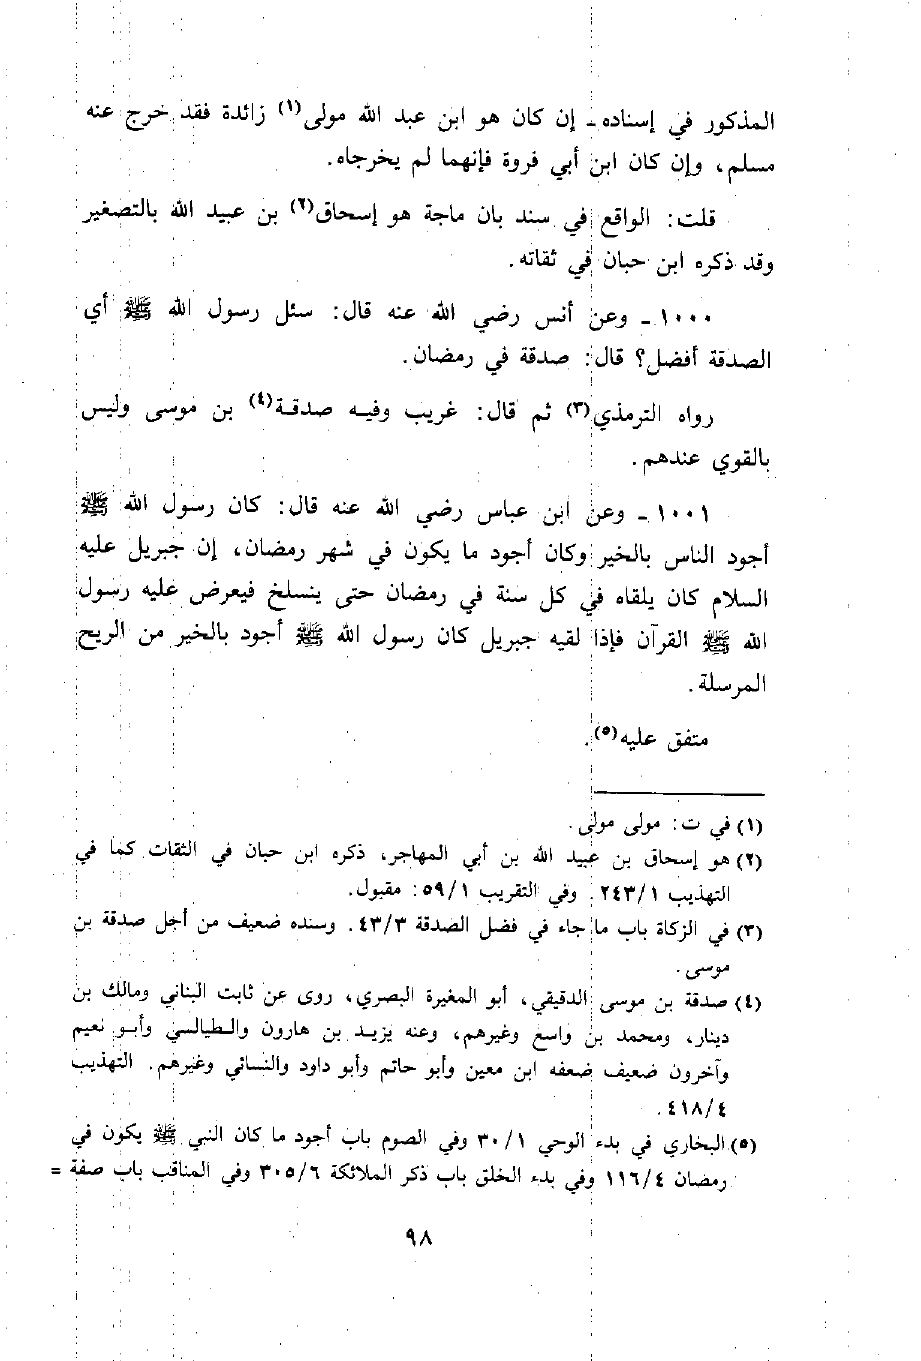 المذكور في إسناده ـ إن كان هو ابن عبد الله مولى(١) زائدة فقد خرج عنه
مسلم، وإن كان ابن أبي فروة فإنهما لم يخرجاه.
قلت: الواقع في سند بان ماجة هو إسحاق(٢) بن عبيد الله بالتصغير
وقد ذكره ابن حبان في ثقاته.
١٠٠٠ ـ وعن أنس رضي الله عنه قال: سئل رسول الله ﷺ أي
الصدقة أفضل؟ قال: صدقة في رمضان.
رواه الترمذي(٣) ثم قال: غريب وفيه صدقة(٤) بن موسى وليس
بالقوي عندهم.
١٠٠١ ـ وعن ابن عباس رضي الله عنه قال: كان رسول الله ﷺ
أجود الناس بالخير وكان أجود ما يكون في شهر رمضان، إن جبريل عليه
السلام كان يلقاه في كل سنة في رمضان حتى ينسلخ فيعرض عليه رسول
الله ﷺ القرآن فإذا لقيه جبريل كان رسول الله ﷺ أجود بالخير من الريح
المرسلة.
متفق عليه(٥).
(١) في ت: مولى مولى.
(٢) هو إسحاق بن عبيد الله بن أبي المهاجر، ذكره ابن حبان في الثقات كما في
التهذيب ٢٤٣/١. وفي التقريب ٥٩/١: مقبول.
(٣) في الزكاة باب ما جاء في فضل الصدقة ٤٣/٣. وسنده ضعيف من أجل صدقة بن
موسى.
(٤) صدقة بن موسى الدقيقي، أبو المغيرة البصري، روى عن ثابت البناني ومالك بن
دينار، ومحمد بن واسع وغيرهم، وعنه يزيد بن هارون والطيالسي وأبو نعيم
وآخرون ضعيف ضعفه ابن معين وأبو حاتم وأبو داود والنسائي وغيرهم. التهذيب
٤١٨/٤.
(٥) البخاري في بدء الوحي ٣٠/١ وفي الصوم باب أجود ما كان النبي ﷺ يكون في
رمضان ١١٦/٤ وفي بدء الخلق باب ذكر الملائكة ٣٠٥/٦ وفي المناقب باب صفة =
٩٨